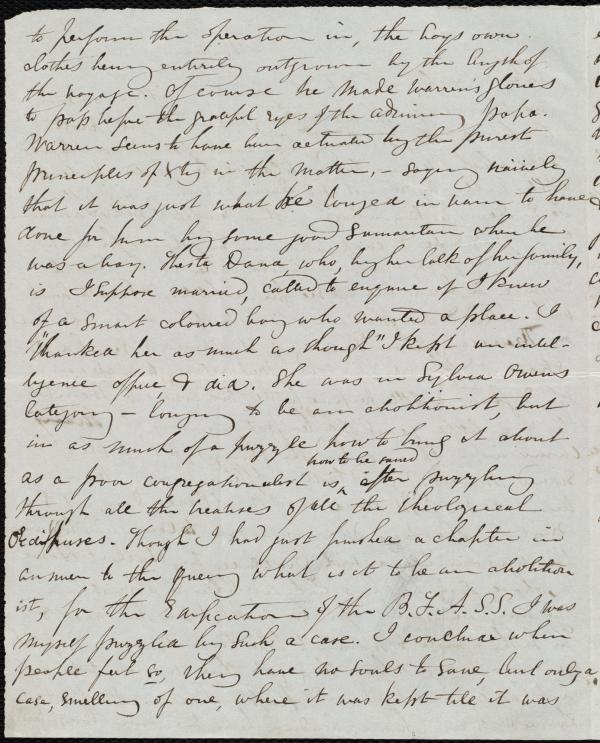 to perform the operation in, the boys own
clothes being entirely outgrown by the length of
the voyage. Of course he made Warren's gloves
to pass before the grateful eyes of the admiring papa.
Warren seems to have been actuated by the purest
principles of Xty in the matter, – saying naively
that it was just what he longed in vain to have
done for him by some good Samaritan when he
was a boy. Hesta Dana, who, by her talk of her family,
is I suppose married, called to enquire if I knew
of a smart coloured boy who wanted a place. I
thanked her as much as though "I kept an intel-
ligence office" & did. She was in Sylvia Owens
category – longing to be an abolitionist, but
in as much of a puzzle how to bring it about
as a poor congregationalist is, how to be saved after puzzling
through all the treatises of all the theological
Oedipuses. Though I had just finished a chapter in
answer to the query what is it to be an abolition
ist, for the Edification of the B.F.A.S.S. I was
myself puzzled by such a case. I conclude when
people feel so, they have no souls to save, but only a
case, smelling of one, where it was kept till it was